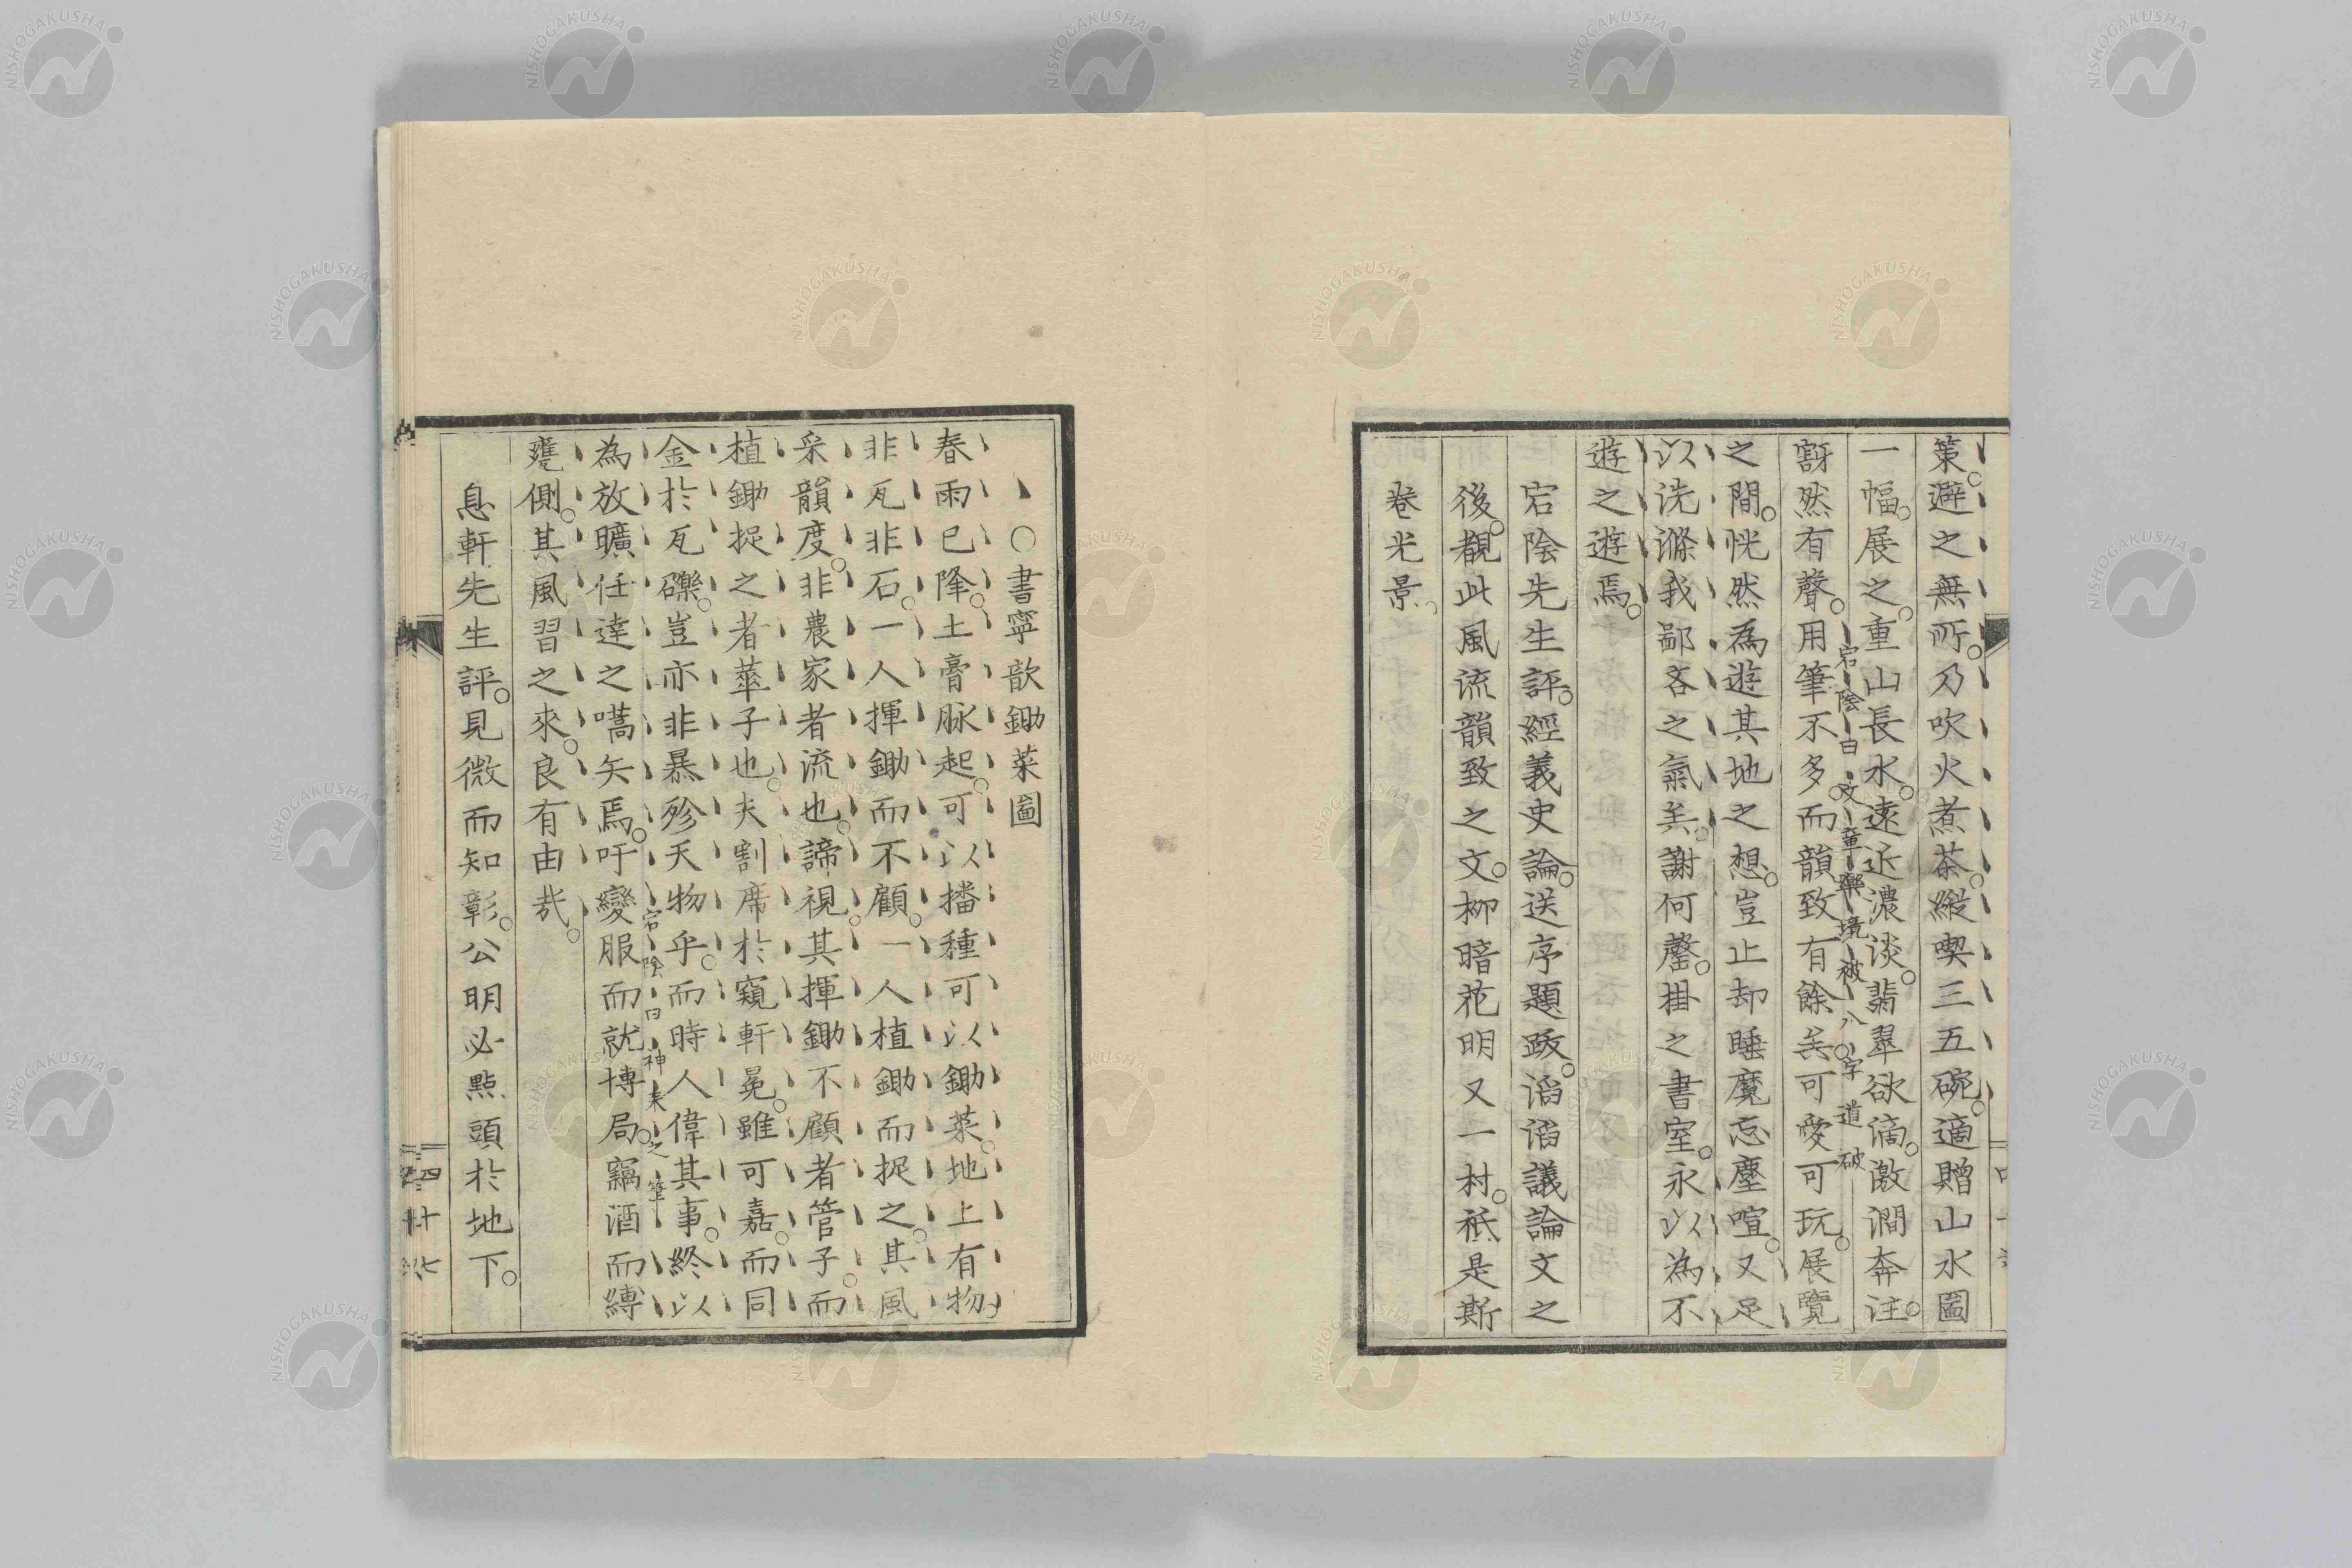 策避之無所乃吹火煮茶縱喫三五碗適贈山水圖
一幅展之重山長水遠近濃淡翡翠欲滴激澗奔注
豁然有聲用筆不多而韻致有餘矣可愛可玩展覽
宕陰曰文章樂境被八字道破
之間恍然為遊其地之想豈止却睡魔忘塵喧又足
以洗滌我鄙吝之氣矣謝何罄掛之書室永以為不
遊之遊焉
宕陰先生評經義史論送序題跋滔滔議論文之
後覩此風流韻致之文柳暗花明又一村秪是斯
卷光景
○書寧歆鋤菜圖
春雨已降土膏脉起可以播種可以鋤菜地上有物
非瓦非石一人揮鋤而不顧一人植鋤而捉之其風
采韻度非農家者流也諦視其揮鋤不顧者管子而
植鋤捉之者華子也夫割席於窺軒冕雖可嘉而同
金於瓦礫豈亦非暴殄天物乎而時人偉其事終以
宕陰曰神来之筆
為放曠任達之嚆矢焉吁變服而就博局竊酒而縛
甕側其風習之來良有由哉
息軒先生評見微而知彰公明必點頭於地下
NISHOGAKUSHA